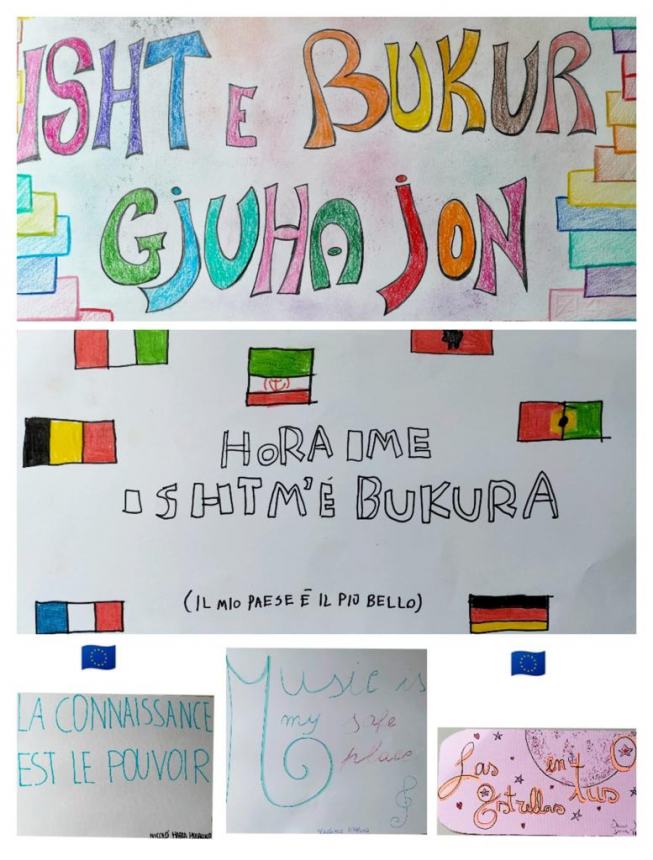 ISHT E BUKUR
GJUHA JON
HORA IME
ISHTM'É BUKURA
(IL MIO PAESE È IL PIÙ BELLO)
LA CONNAISSANCE
EST LE POUVOIR
Music is
my safe
place
Las
Estrellas
en tus